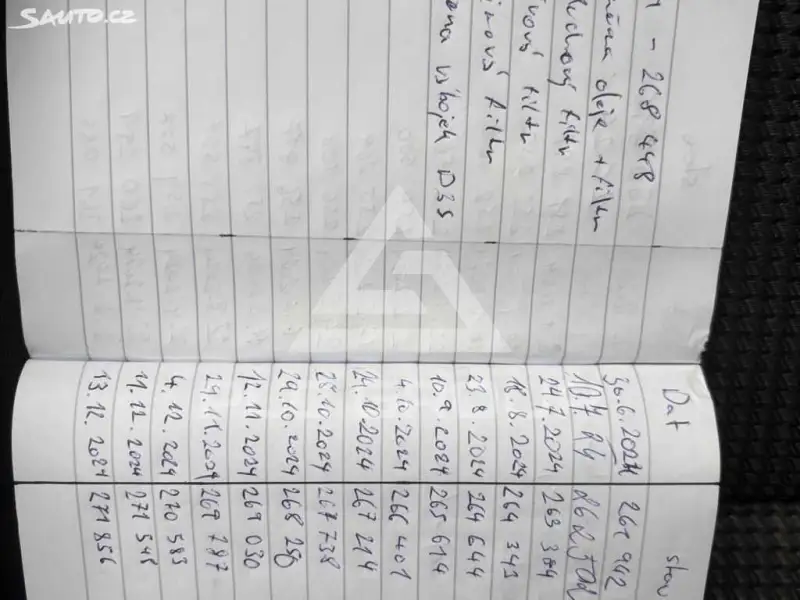 SAUTO.CZ
- 268 448
oleje + filtr
filtr
filtr
filtr
výbojek D3S
Dat stav
30.6.2024 261 942
10.7. 24
24.7.2024 263 304
18.8.2024 264 343
23.8.2024 264 644
10.9.2024 265 614
4.10.2024 266 401
24.10.2024 267 214
28.10.2024 267 738
29.10.2024 268 250
12.11.2024 269 030
29.11.2024 269 787
4.12.2024 270 583
11.12.2024 271 545
13.12.2024 271 856